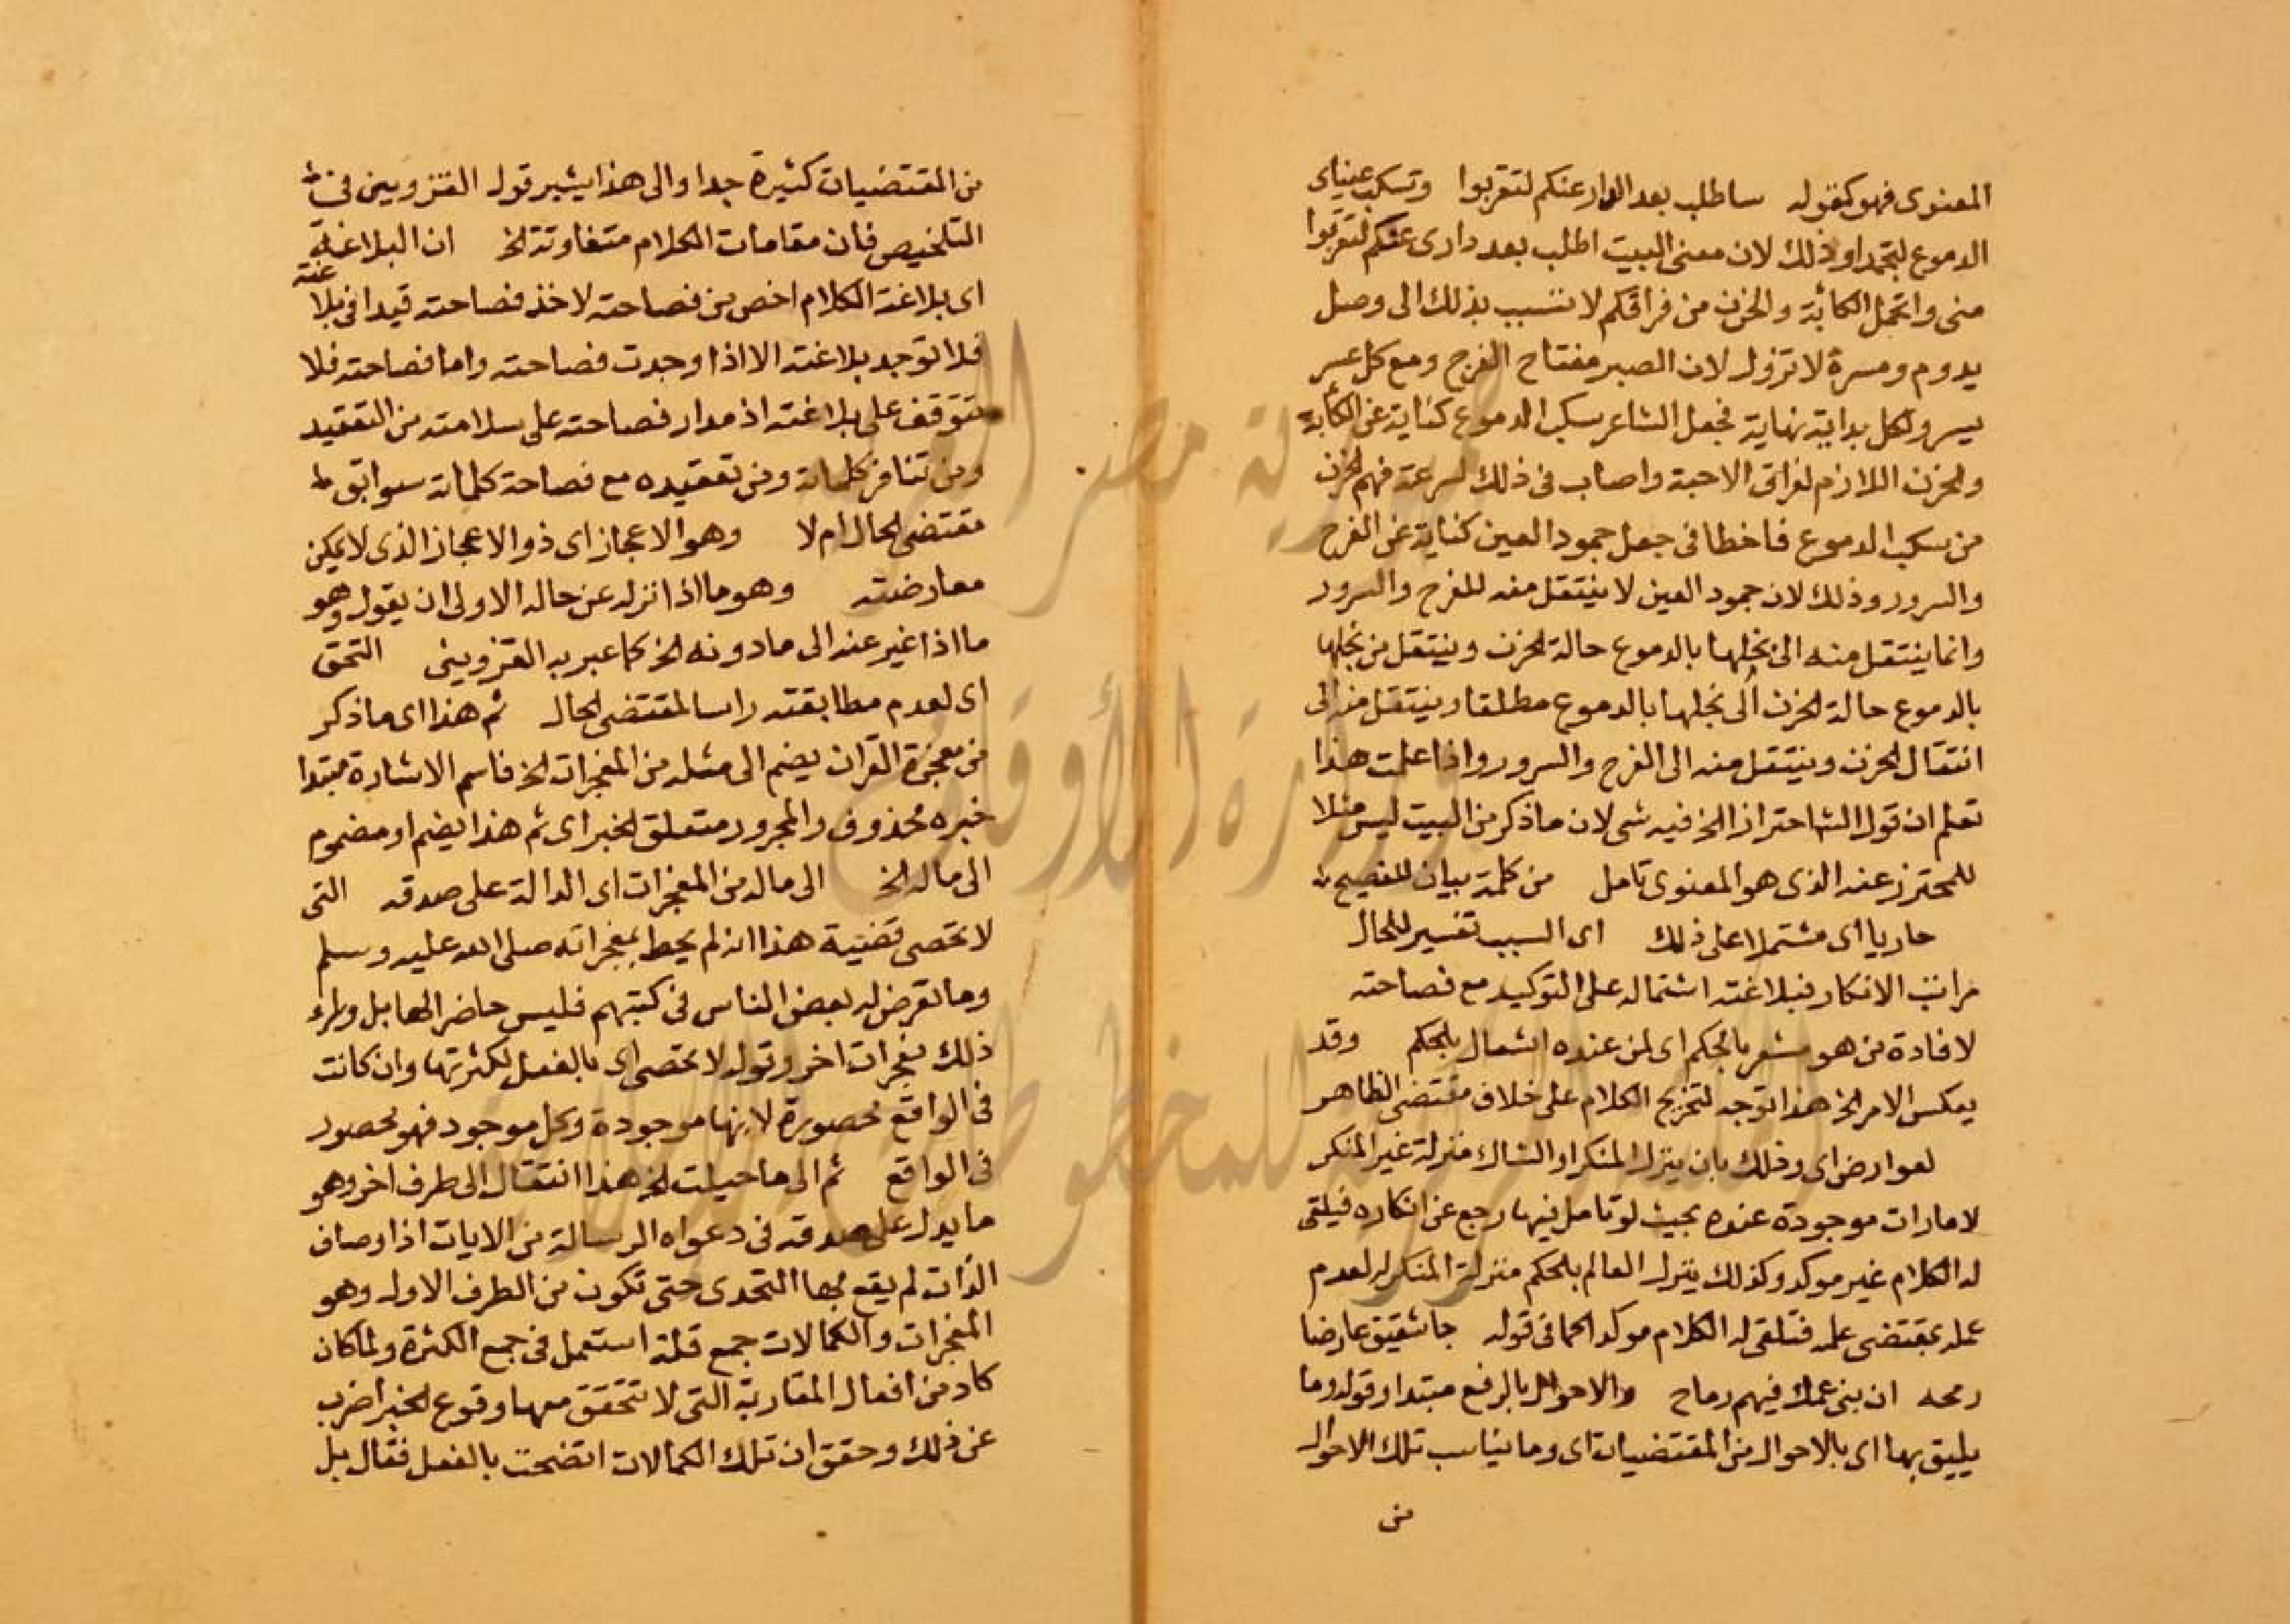 المعنوى فهو كقوله ساطلب بعد الدار عنكم لتقربوا وتسكب عيناى
الدموع لتجمدا وذلك لان معنى البيت اطلب بعد دارى عنكم لتقربوا
منى واتحمل الكآبة والحزن من فراقكم لاتسبب بذلك الى وصل
يدوم ومسرة لا تزول لان الصبر مفتاح الفرج ومع كل عسر
يسر ولكل بداية نهاية فجعل الشاعر سكب الدموع كناية عن الكأبة
والحزن اللازم لفراق الاحبة واصاب فى ذلك لسرعة فهم الحزن
من سكب الدموع فاخطا فى جعل جمود العين كناية عن الفرح
والسرور وذلك لان جمود العين لا ينتقل منه للفرح والسرور
وانما ينتقل منه الى بخلها بالدموع حالة الحزن وينتقل من بخلها
بالدموع حالة الحزن الى بخلها بالدموع مطلقا وينتقل منه الى
انتقال الحزن وينتقل منه الى الفرح والسرور واذا علمت هذا
تعلم ان قول الشا احترازا الخ فيه شى لان ما ذكر من البيت ليس مثلا
للمحترز عنه الذى هو المعنوى تامل من كلمة بيان للفصيح
حاريا اى مشتملا على ذلك اى السبب تفسير للحال
مراتب الانكار فبلاغته اشتماله على التوكيد مع فصاحته
لافادة من هو مشعر بالحكم اى لمن عنده اشعال بالحكم وقد
يعكس الامر الخ هذا توجه لتخريج الكلام على خلاف مقتضى الظاهر
لعوارض اى وذلك بان ينزل المنكر او الشاك منزلة غير المنكر
لامارات موجودة عنده بحيث لو تامل فيها رجع عن انكاره فيلقى
له الكلام غير موكد وكذلك ينزل العالم بالحكم منزلة المنكر له لعدم
عمله بمقتضى علمه فتلقى له الكلام موكدا كما فى قوله جا شقيق عارضا
رمحه ان بنى عمك فيهم رماح والاحوال بالرفع مبتدا وقوله وما
يليق بها اى بالاحوال من المقتضيات اى وما يناسب تلك الاحوال
من
من المقتضيات كثيرة جدا والى هذا يشير قول القزوينى فى
التلخيص فان مقامات الكلام متفاوتة الخ ان البلاغة
اى بلاغة الكلام اخص من فصاحته لاخذ فصاحته قيدا فى بلاغته
فلا توجد بلاغته الا اذا وجدت فصاحته واما فصاحته فلا
تتوقف على بلاغته اذ مدار فصاحته على سلامته من التعقيد
ومن تنافر كلماته ومن تعقيده مع فصاحة كلماته سوا
مقتضى الحال ام لا وهو الاعجاز اى ذو الاعجاز الذى لا يمكن
معارضته وهو ما اذا نزل عن حاله الاولى ان يقول وهو
ما اذا غير عنه الى ما دونه الخ كما عبر به القزوينى التحق
اى لعدم مطابقته راسا لمقتضى الحال ثم هذا اى ما ذكر
من معجزة القرآن يضم الى مثله من المعجزات الخ فاسم الاشارة مبتدا
خبره محذوف والمجرور متعلق الخبر اى ثم هذا يضم او مضموم
الى ماله الخ الى ماله من المعجزات اى الدالة على صدقه التى
لا تحصى قضية هذا انه لم يحط بمعجزاته صلى الله عليه وسلم
وما تعرض له بعض الناس فى كتبهم فليس حاضرا لها بل وراء
ذلك معجزات اخر وقوله لا تحصى اى بالفعل لكثرتها وان كانت
فى الواقع محصورة لانها موجودة وكل موجود فهو محصور
فى الواقع ثم الى ما حيلت الخ هذا انتقال الى طرف اخر وهو
ما يدل على صدقه فى دعواه الرسالة من الايات اذ اوصاف
الذات لم يقع بها التحدى حتى تكون من الطرف الاول وهو
المعجزات والكمالات جمع قلة استعمل فى جمع الكثرة ولما كان
كاد من افعال المقاربة التى لا تتحقق معها وقوع الخبر اضرب
عن ذلك وحقق ان تلك الكمالات اتضحت بالفعل فقال بل